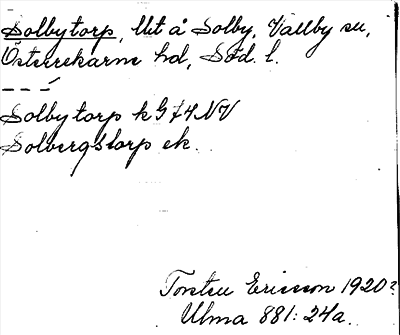 Solbytorp, lht å Solby, Vallby sn,
Österrekarne hd, Söd. l.
– – –́
Solbytorp k G 74 NV
Solbergstorp ek.
Torsten Ericsson 1920?
Ulma 881: 24a.